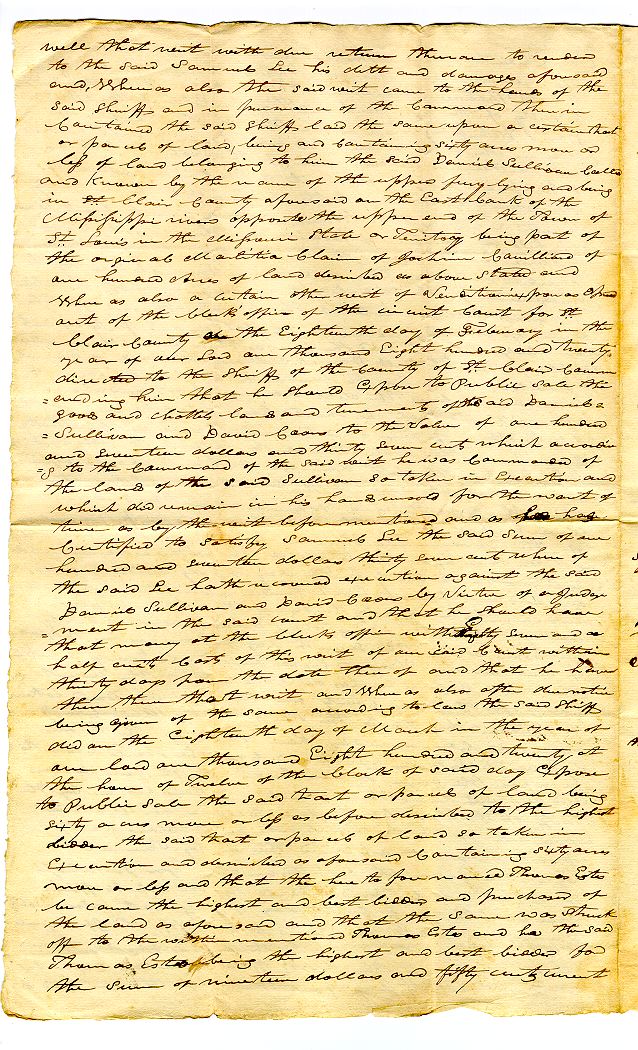 well that writ with due return thereon to render
to the said Samuel Lee his debt and damages aforesaid
and, Whereas also the said writ came to the hands of the
said Sheriff and in pursuance of the Command therein
Contained the said Sheriff laid the same upon a certain tract
or parcel of land, being and Containing sixty acres more or
less of land belonging to him the said Daniel Sullivan Called
and Known by the name of the upper ferry lying and being
in St. Clair County aforesaid on the East bank of the
Mississippi river opposite the upper end of the Town of
St. Louis in the Missouri State or Territory being part of
the original Malitia Claim of
one hundred Acres of land described as above Stated and
Whereas also a certain other writ of Venditioni exponas
out of the Clerk office of the circuit Court for St.
Clair County on the Eighteenth day of February in the
year of our Lord one thousand Eight hundred and twenty,
directed to the Sheriff of the County of St. Clair Comm
=anding him that he Should Expose to Public Sale the
goods and chattels lands and tenements of the said Daniel =
=Sullivan and David to the Value of one hundred
and Seventeen dollars and thirty seven cents which accordin
=g to the Command of the said writ he was Commanded of
the lands of the said Sullivan so taken in Execution and
which did remain in his hands unsold for the want of
time as by the writ before mentioned and as he has
Certified to satisfy Samuel Lee the said Sum of one
hundred and seventeen dollars thirty seven cents where of
the said Lee hath recovered execution against the said
Daniel Sullivan and David by Virtue of a Judge
=ment in the said court and that he should have
that money at the Clerks office with Eighty seven and a
half cents Costs of this writ of our said Court within
thirty days from the date there of and that he have
then there that writ and Whereas also after due notice
being given of the same according to law the said Sheriff
did on the Eighteenth day of March in the year of
our Lord one thousand Eight hundred and twenty at
the hour of Twelve of the Clock of said day Expose
to Public Sale the said tract or parcel of land being
sixty acres more or less as before described to the highest
bidder the said tract or parcel of land so taken in
Execution and described as aforesaid Containing sixty acres
more or less and that the here to fore named Thomas Estes
be came the highest and best bidder and purchaser of
the land as aforesaid and that the same was struck
off to the within mentioned Thomas Estes and he the said
Thomas Estes being the highest and best bidder for
the Sum of nineteen dollars and fifty cents current